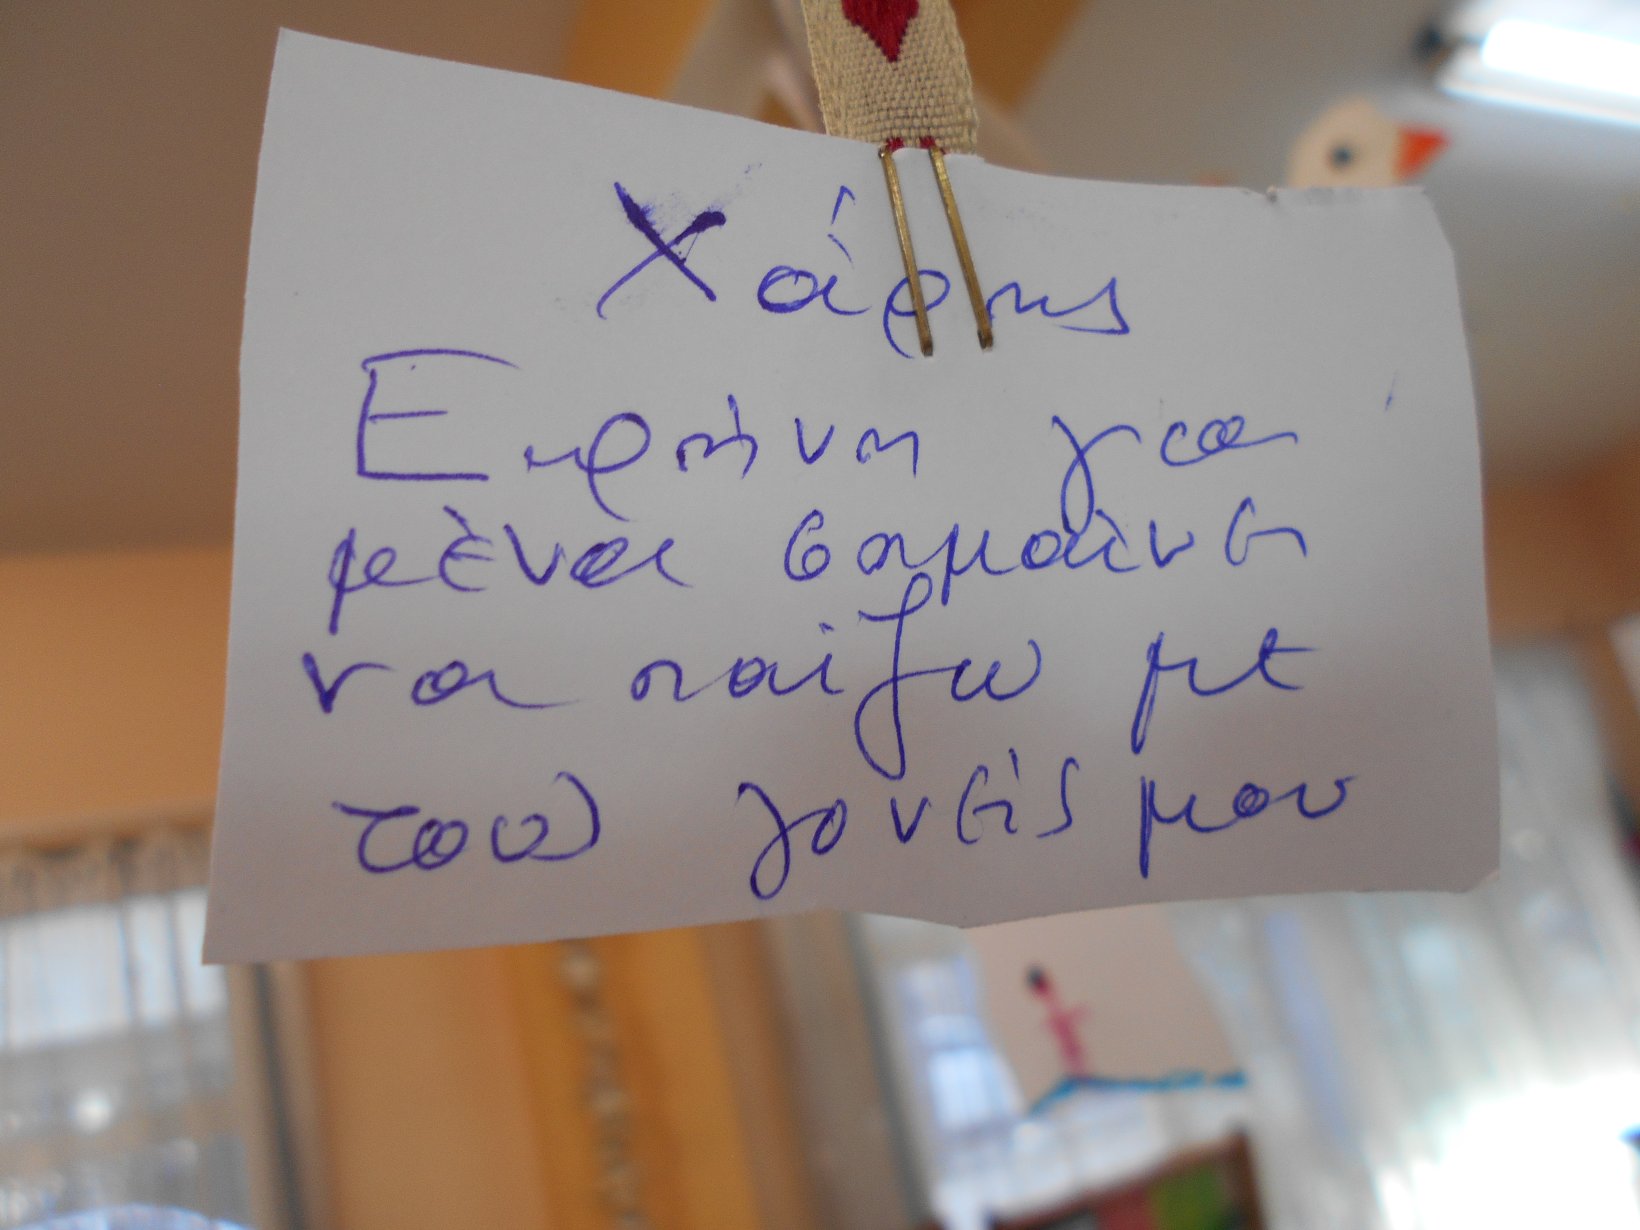 Χάρης
Ειρήνη για
μένα σημαίνει
να παίζω με
τους γονείς μου